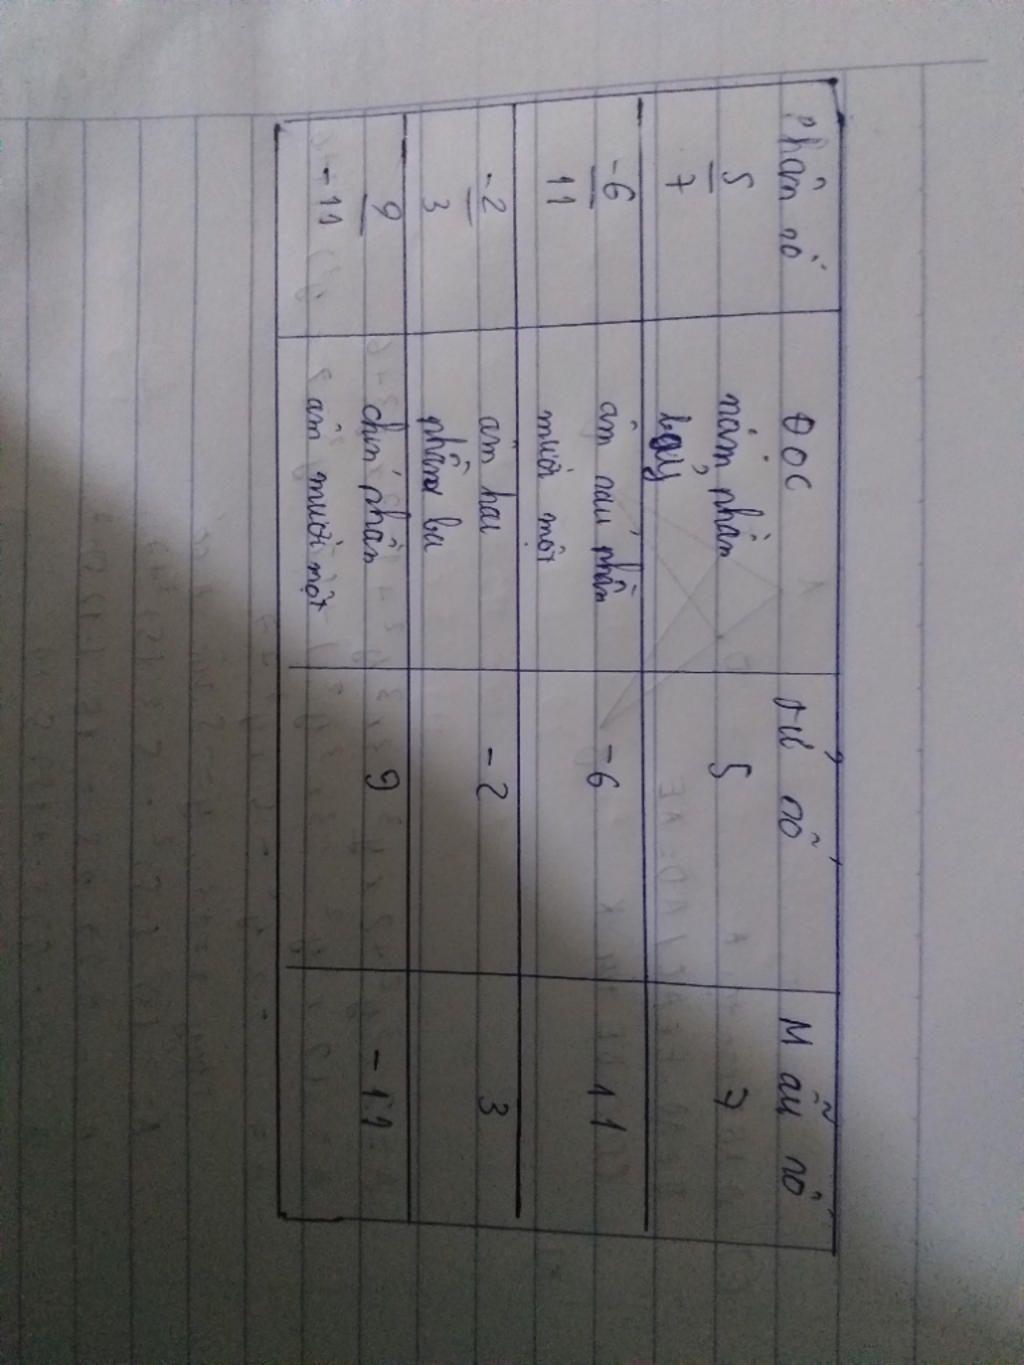 Phân số Đọc Tử số Mẫu số
5/7 năm phần bảy 5 7
-6/11 âm sáu phần mười một -6 11
-2/3 âm hai phần ba -2 3
9/-11 chín phần âm mười một 9 -11